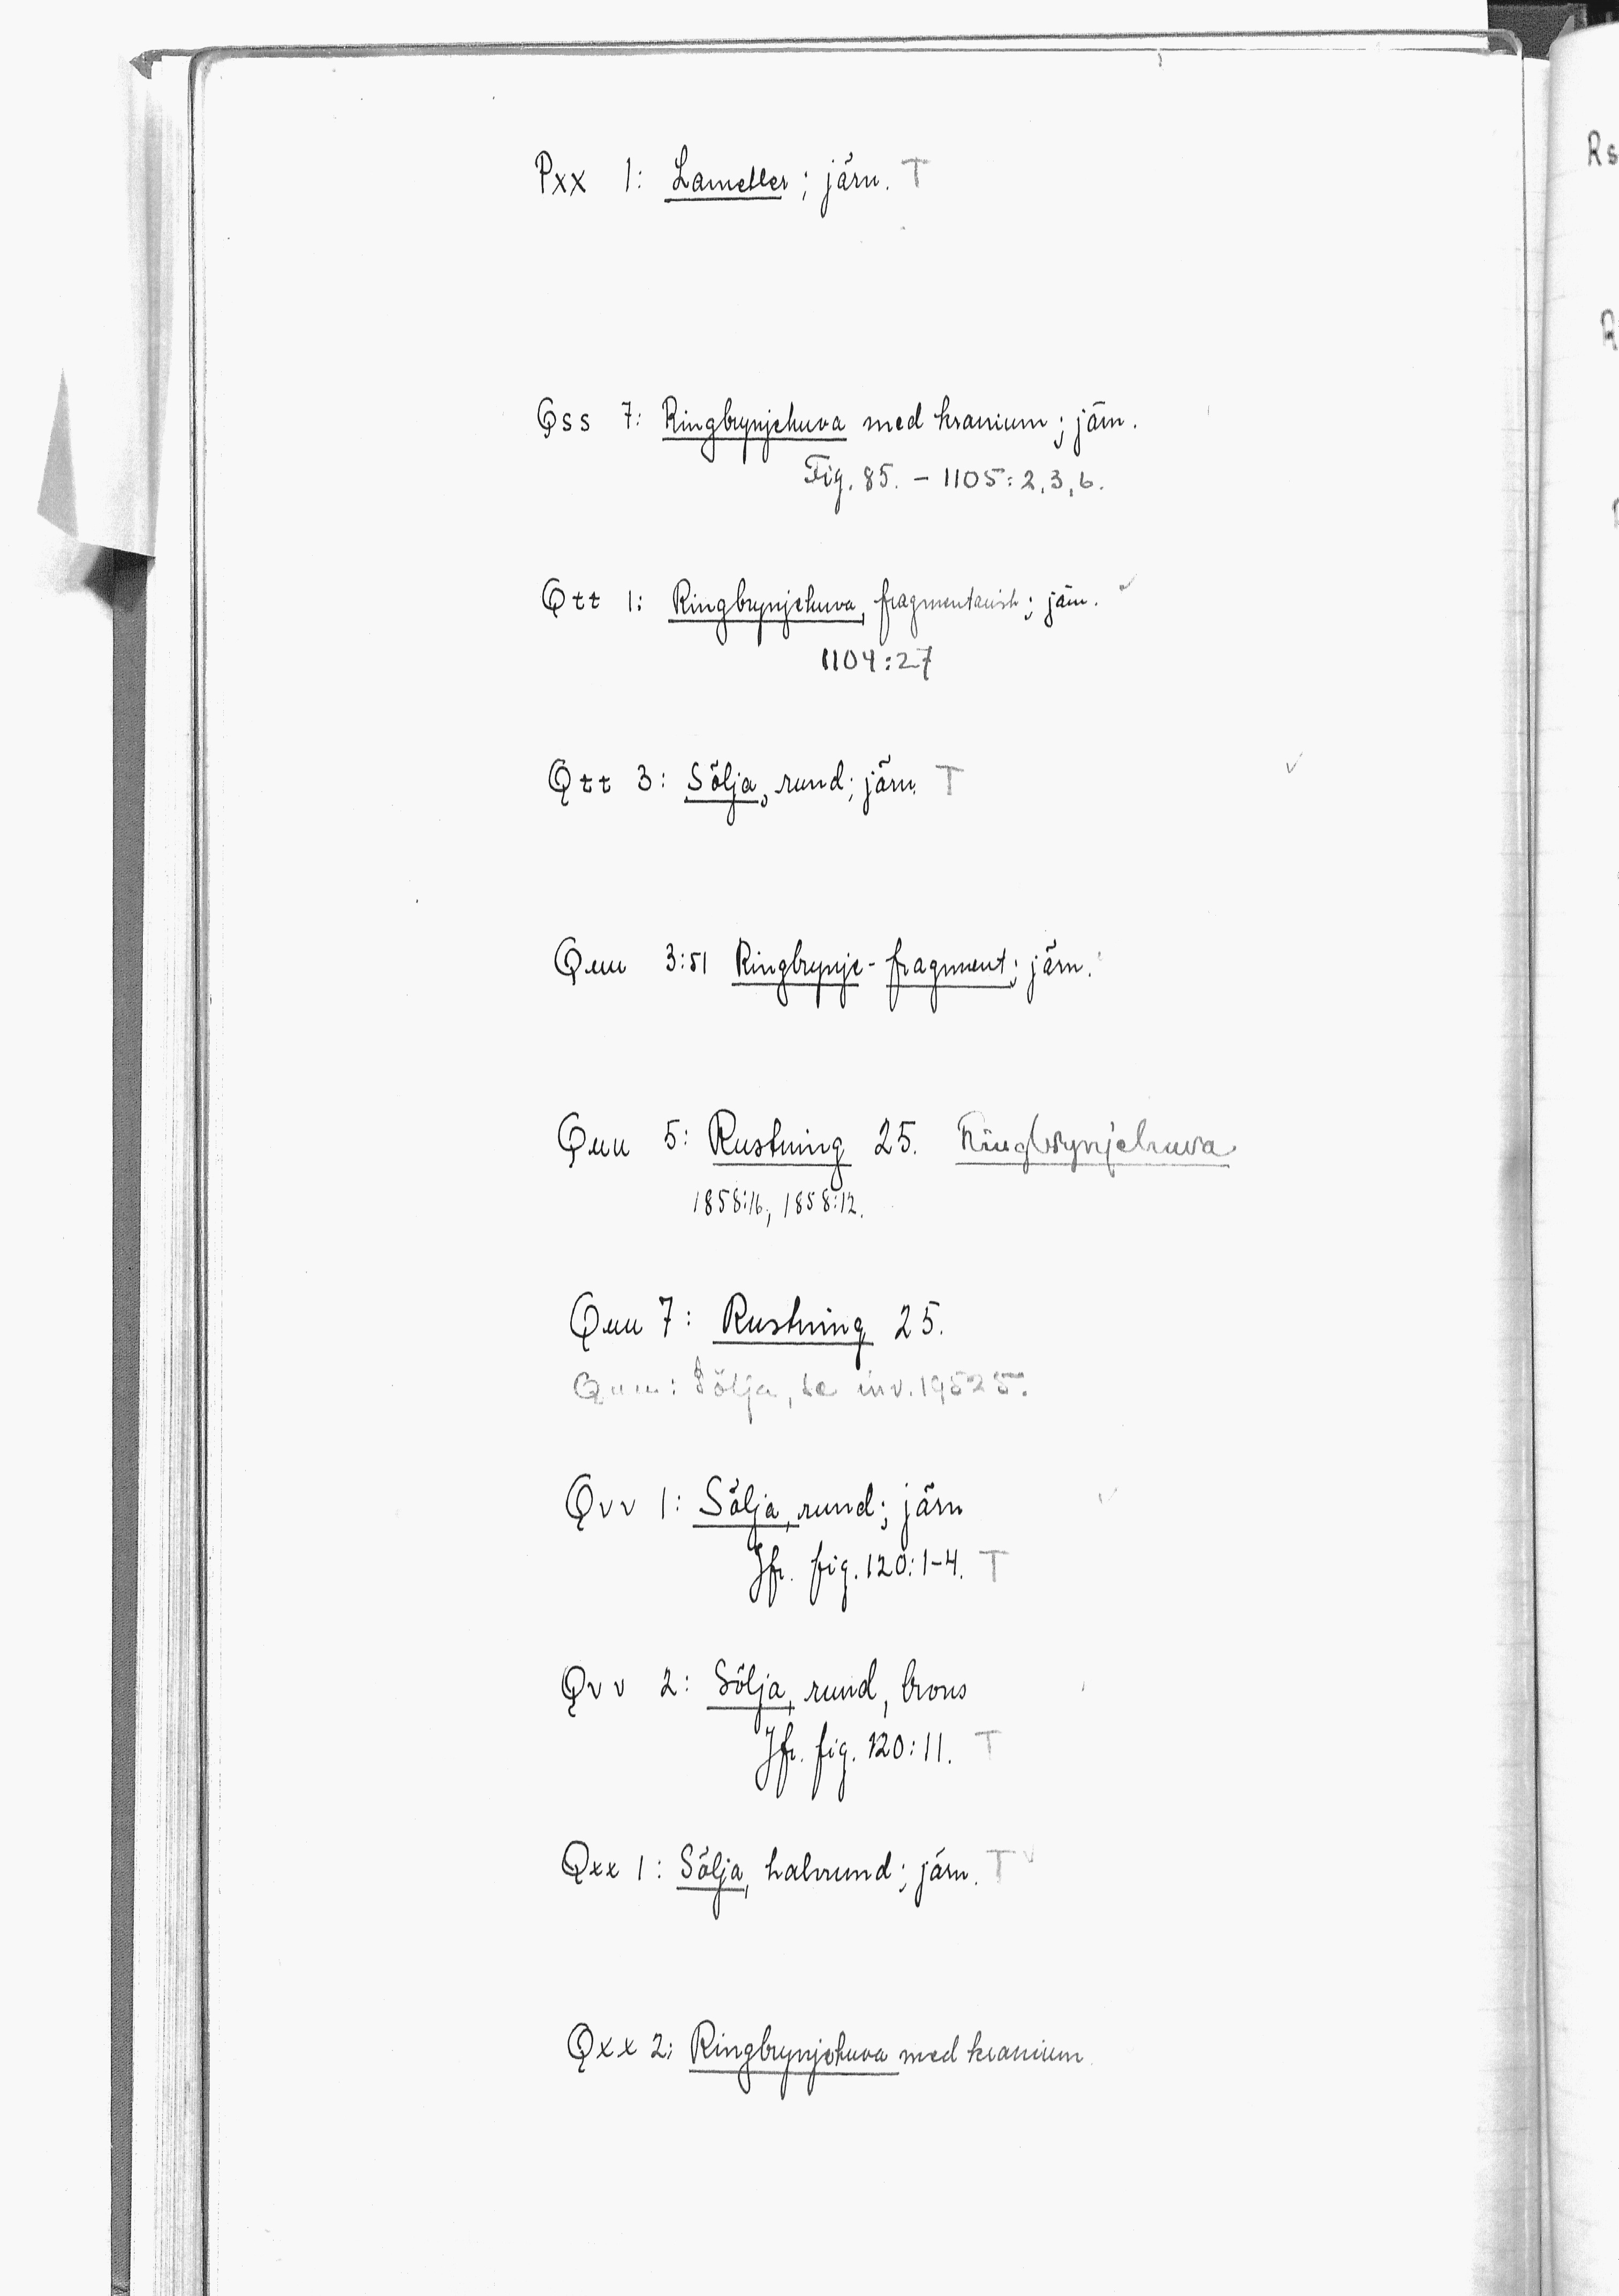 Pxx 1: Lameller; järn. T
Qss 7: Ringbrynjehuva med kranium; järn.
Fig. 85. - 1105: 2, 3, 6.
Qtt 1: Ringbrynjehuva, fragmentarisk; järn. ✓
1104:27
Qtt 3: Sölja, rund; järn. T ✓
Quu 3:51 Ringbrynje-fragment; järn.
Quu 5: Rustning 25. Ringbrynjehuva
1858:16, 1858:12.
Quu 7: Rustning 25.
Quu: Sölja, se inv. 19525.
Qvv 1: Sölja, rund; järn ✓
Jfr. fig. 120: 1-4. T
Qvv 2: Sölja, rund, brons
Jfr. fig. 120: 11. T
Qxx 1: Sölja, halvrund; järn. T ✓
Qxx 2: Ringbrynjehuva med kranium.
Rs